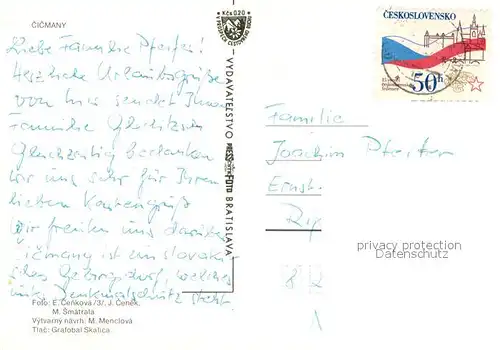 ČIČMANY
Liebe Familie Pfeifer!
Herzliche Urlaubsgrüße
von hier sendet Ihnen
Familie
Gleichzeitig bedanken
wir uns sehr für Ihren
lieben Kartengruß
Wir freuten uns darüber
Čičmany ist ein slowaki-
sches Gebirgsdorf, welches
unter Denkmalschutz steht
Foto: E. Čeňková /3/, J. Čeněk,
M. Šmátrala
Výtvarný návrh: M. Menclová
Tlač: Grafobal Skalica
Kčs 0,20
VYDAVATEĽSTVO
PRESSFOTO
BRATISLAVA
ČESKOSLOVENSKO
50h
Familie
Joachim Pfeifer
Ernst-
privacy protection
Datenschutz
8 2